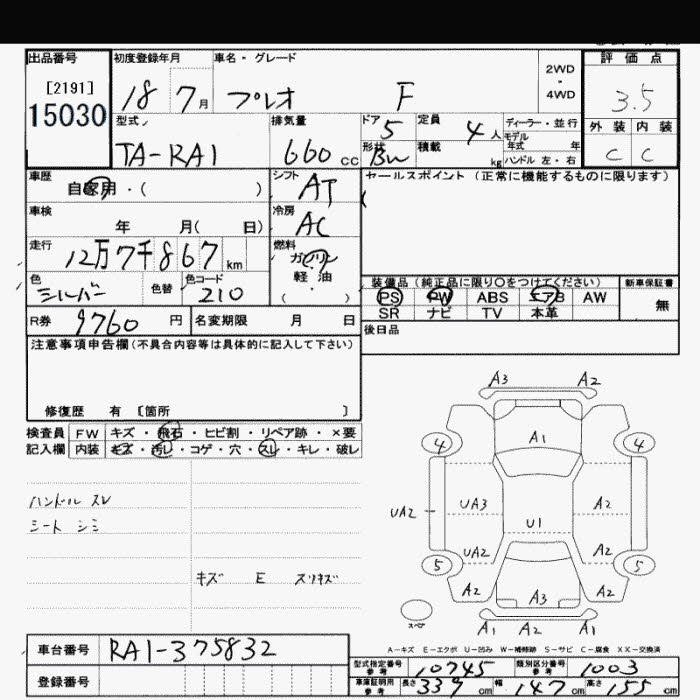 出品番号 初度登録年月 車名・グレード 2WD・4WD 評価点
[2191] 15030 18 7月 プレオ F 3.5
型式 排気量 ドア 定員 ディーラー・並行 外装 内装
TA-RA1 660cc 5 4人 モデル年式 年 C C
形状 BW 積載 kg ハンドル 左・右
車歴 シフト セールスポイント(正常に機能するものに限ります)
自家用・( ) AT
車検 冷房
年 月( 日) AC
走行 燃料
12万7千867km ガソリン
色 色替 色コード 軽油
シルバー 210 ( ・ )
装備品(純正品に限り○をつけてください) 新車保証書
PS PW ABS エアB AW 無
SR ナビ TV 本革
R券 9760円 名変期限 月 日 後日品
注意事項申告欄(不具合内容等は具体的に記入して下さい)
修復歴 有 [箇所 ]
検査員 FW キズ・飛石・ヒビ割・リペア跡・×要
記入欄 内装 キズ・汚レ・コゲ・穴・スレ・キレ・破レ
ハンドル スレ
シート シミ
キズ E スリキズ
A3 A2
A1
4 4
UA2 UA3 A2
U1
UA2 A2
5 5
A2 A3 A2
スペア A1 A2 A1
A-キズ E-エクボ U-凹み W-補修跡 S-サビ C-腐食 XX-交換済
車台番号 RA1-375832
型式指定番号 参考 10745 類別区分番号 参考 1003
登録番号
車庫証明用 参考 長さ 339cm 幅 147cm 高さ 155cm